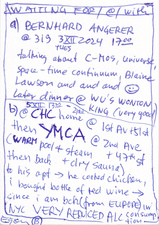 WAITING FOR/@/with
a) BERNHARD ANGERER
@ 319 3XII 2024 1700
1745
talking about C-MOS, universe,
space-time continuum, Blaine,
Lawson and and and
Later dinner @ WU'S WONTON
KING (very good)
b) @ CHC home @ 1st Av + 51st
then YMCA @ 2nd Ave
(WARM pool + steam + 47th st
then bach + dry/sauna)
to his apt → he cooked chicken,
i bought bottle of red wine →
since i am bch (from EUROPE) in
NYC VERY REDUCED ALC